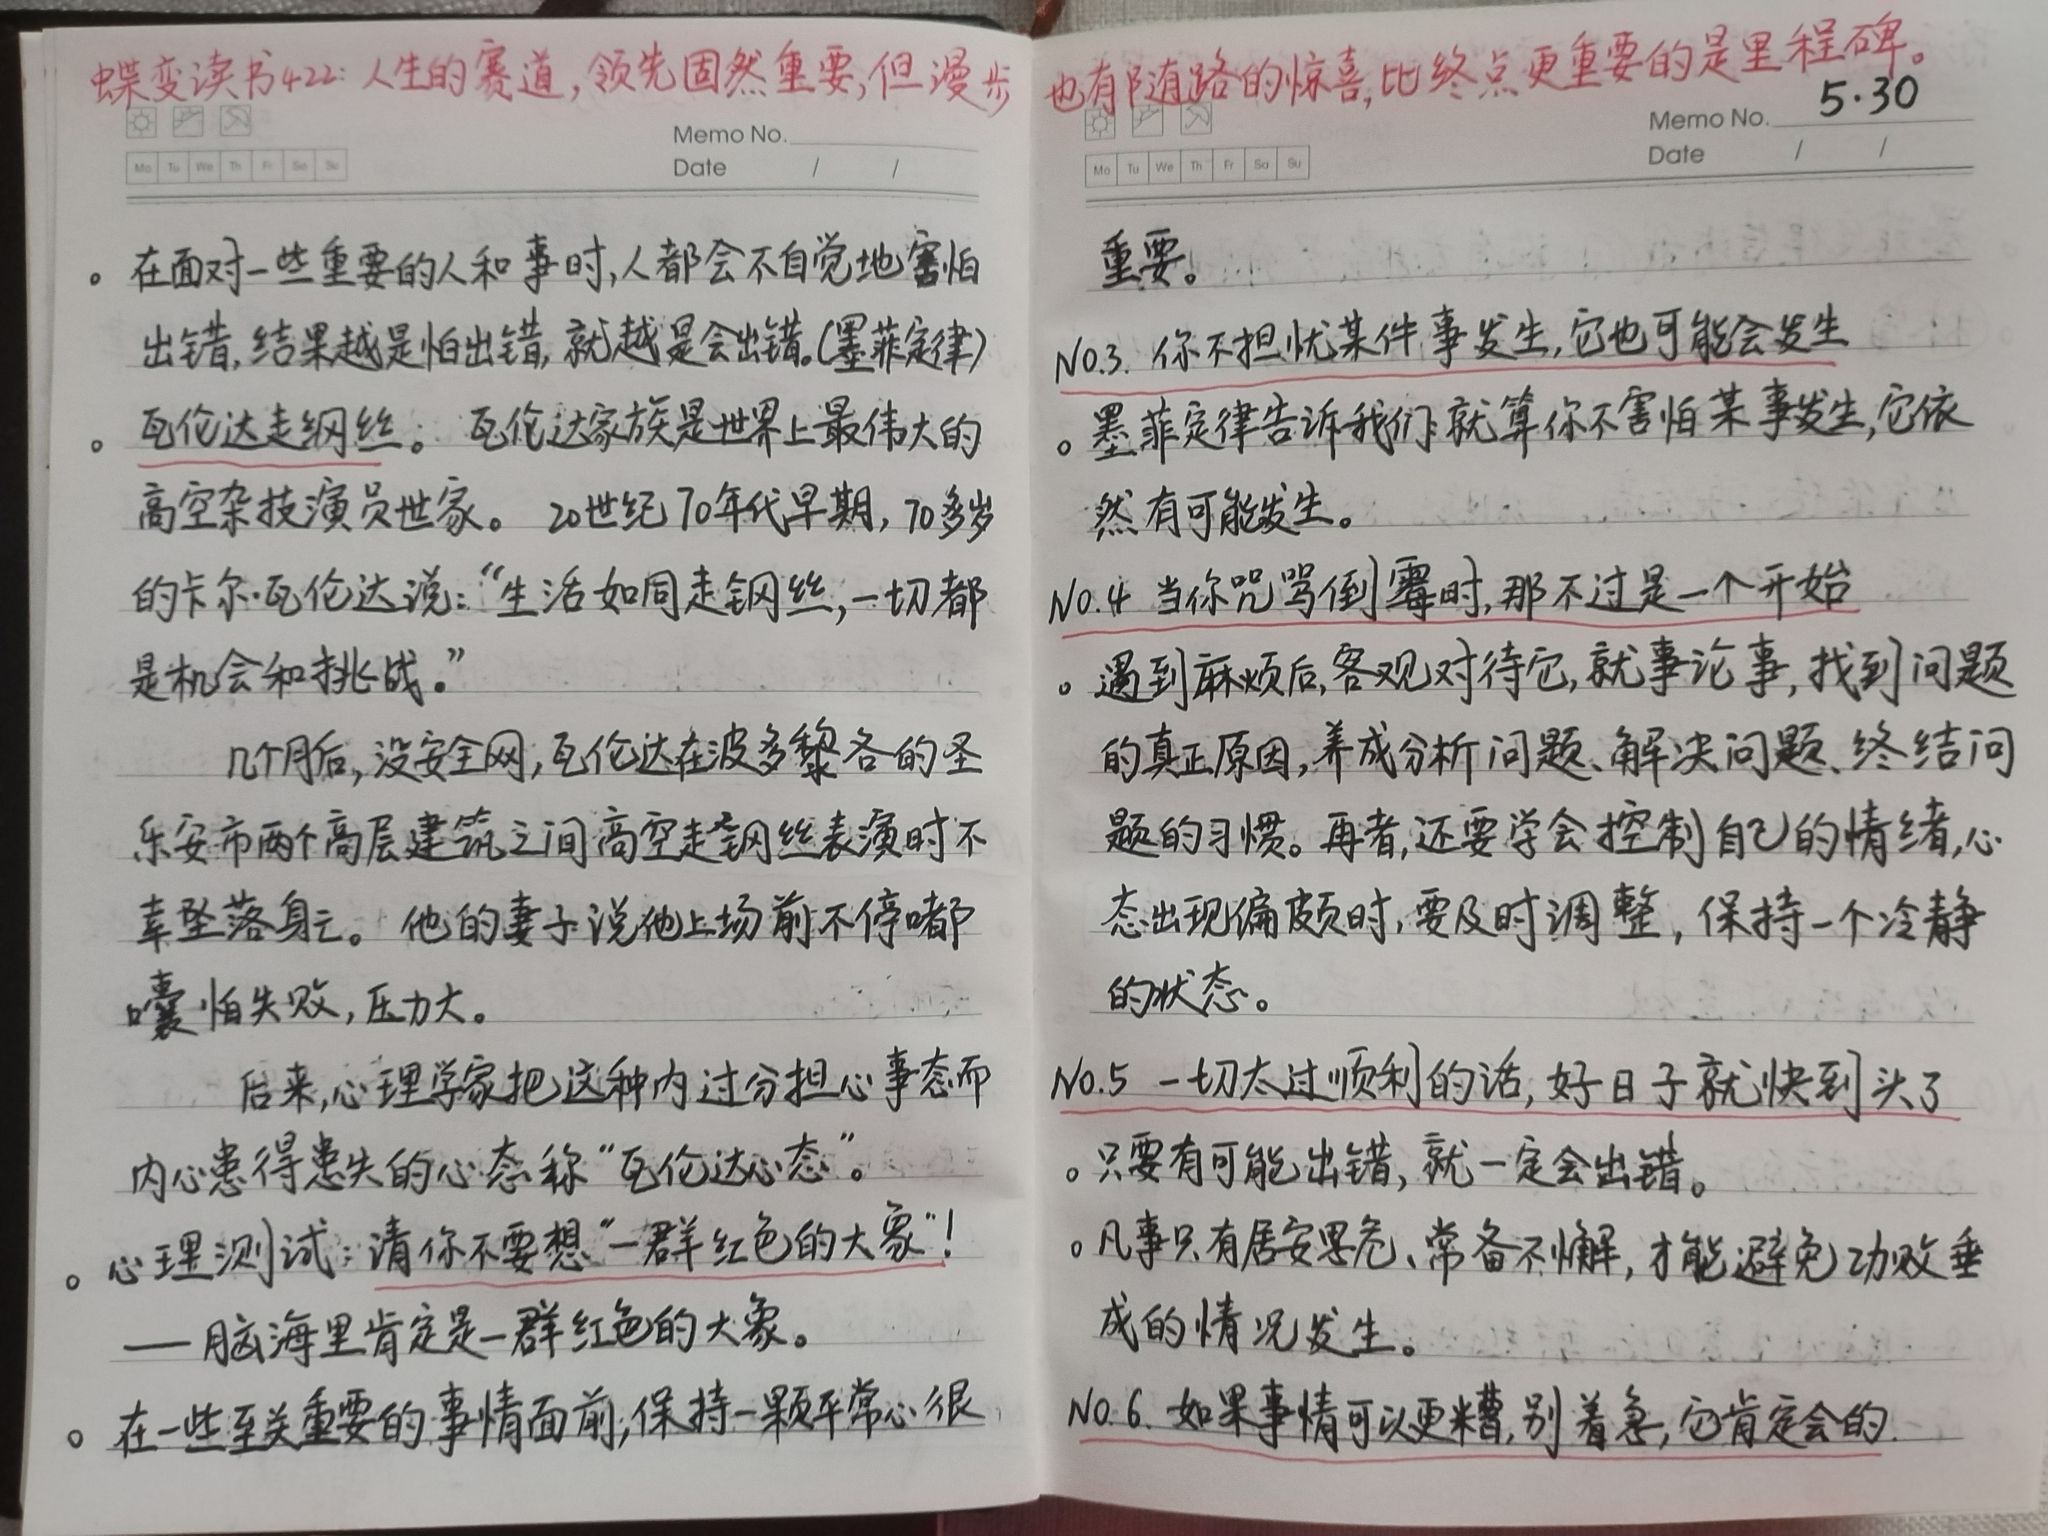 蝶变读书422:人生的赛道,领先固然重要,但漫步
Memo No.
Mo Tu We Th Fr Sa Su
Date / /
。在面对一些重要的人和事时,人都会不自觉地害怕
出错,结果越是怕出错,就越是会出错。(墨菲定律)
。瓦伦达走钢丝。瓦伦达家族是世界上最伟大的
高空杂技演员世家。20世纪70年代早期,70多岁
的卡尔·瓦伦达说:“生活如同走钢丝,一切都
是机会和挑战。”
几个月后,没安全网,瓦伦达在波多黎各的圣
乐安市两个高层建筑之间高空走钢丝表演时不
幸坠落身亡。他的妻子说他上场前不停嘟
囔怕失败,压力大。
后来,心理学家把这种内过分担心事态而
内心患得患失的心态称“瓦伦达心态”。
。心理测试:请你不要想“一群红色的大象”!
——脑海里肯定是一群红色的大象。
。在一些至关重要的事情面前,保持一颗平常心很
也有随路的惊喜,比终点更重要的是里程碑。
Memo No. 5·30
Mo Tu We Th Fr Sa Su
Date / /
重要。
NO.3. 你不担忧某件事发生,它也可能会发生
。墨菲定律告诉我们:就算你不害怕某事发生,它依
然有可能发生。
NO.4 当你咒骂倒霉时,那不过是一个开始
。遇到麻烦后,客观对待它,就事论事,找到问题
的真正原因,养成分析问题、解决问题、终结问
题的习惯。再者,还要学会控制自己的情绪,心
态出现偏颇时,要及时调整,保持一个冷静
的状态。
NO.5 一切太过顺利的话,好日子就快到头了
。只要有可能出错,就一定会出错。
。凡事只有居安思危、常备不懈,才能避免功败垂
成的情况发生。
NO.6. 如果事情可以更糟,别着急,它肯定会的.